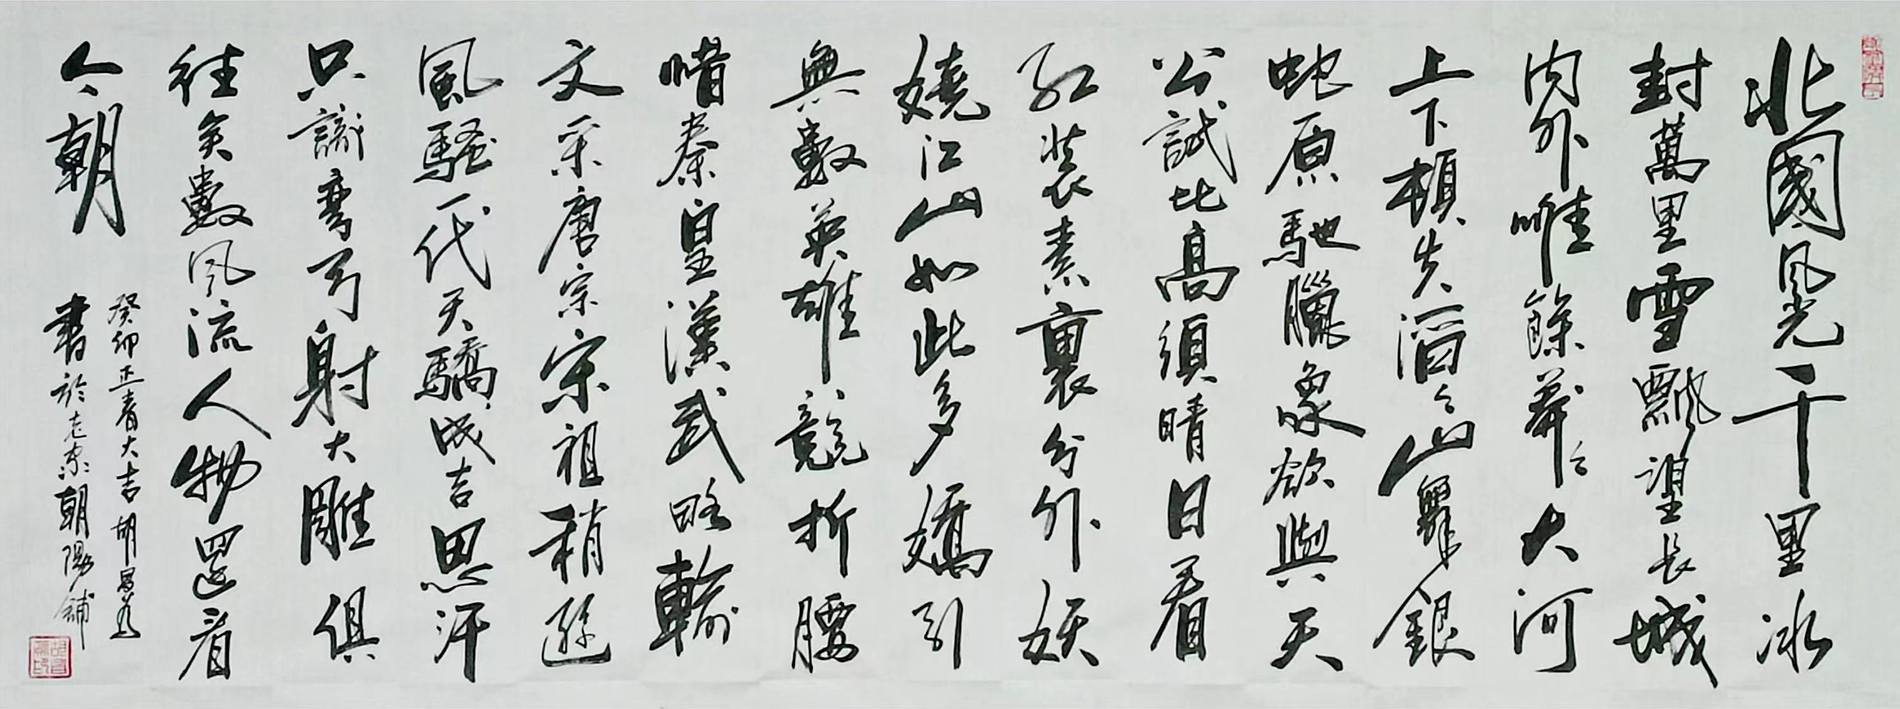 北國風光千里冰
封萬里雪飄望長城
内外唯餘莽々大河
上下頓失滔々山舞銀
蛇原馳臘象欲與天
公試比高須晴日看
紅裝素裹分外妖
嬈江山如此多嬌引
無數英雄競折腰
惜秦皇漢武略輸
文采唐宗宋祖稍遜
風騷一代天驕成吉思汗
只識彎弓射大雕俱
往矣數風流人物還看
今朝
癸卯正春大吉胡
書於老京朝陽舖